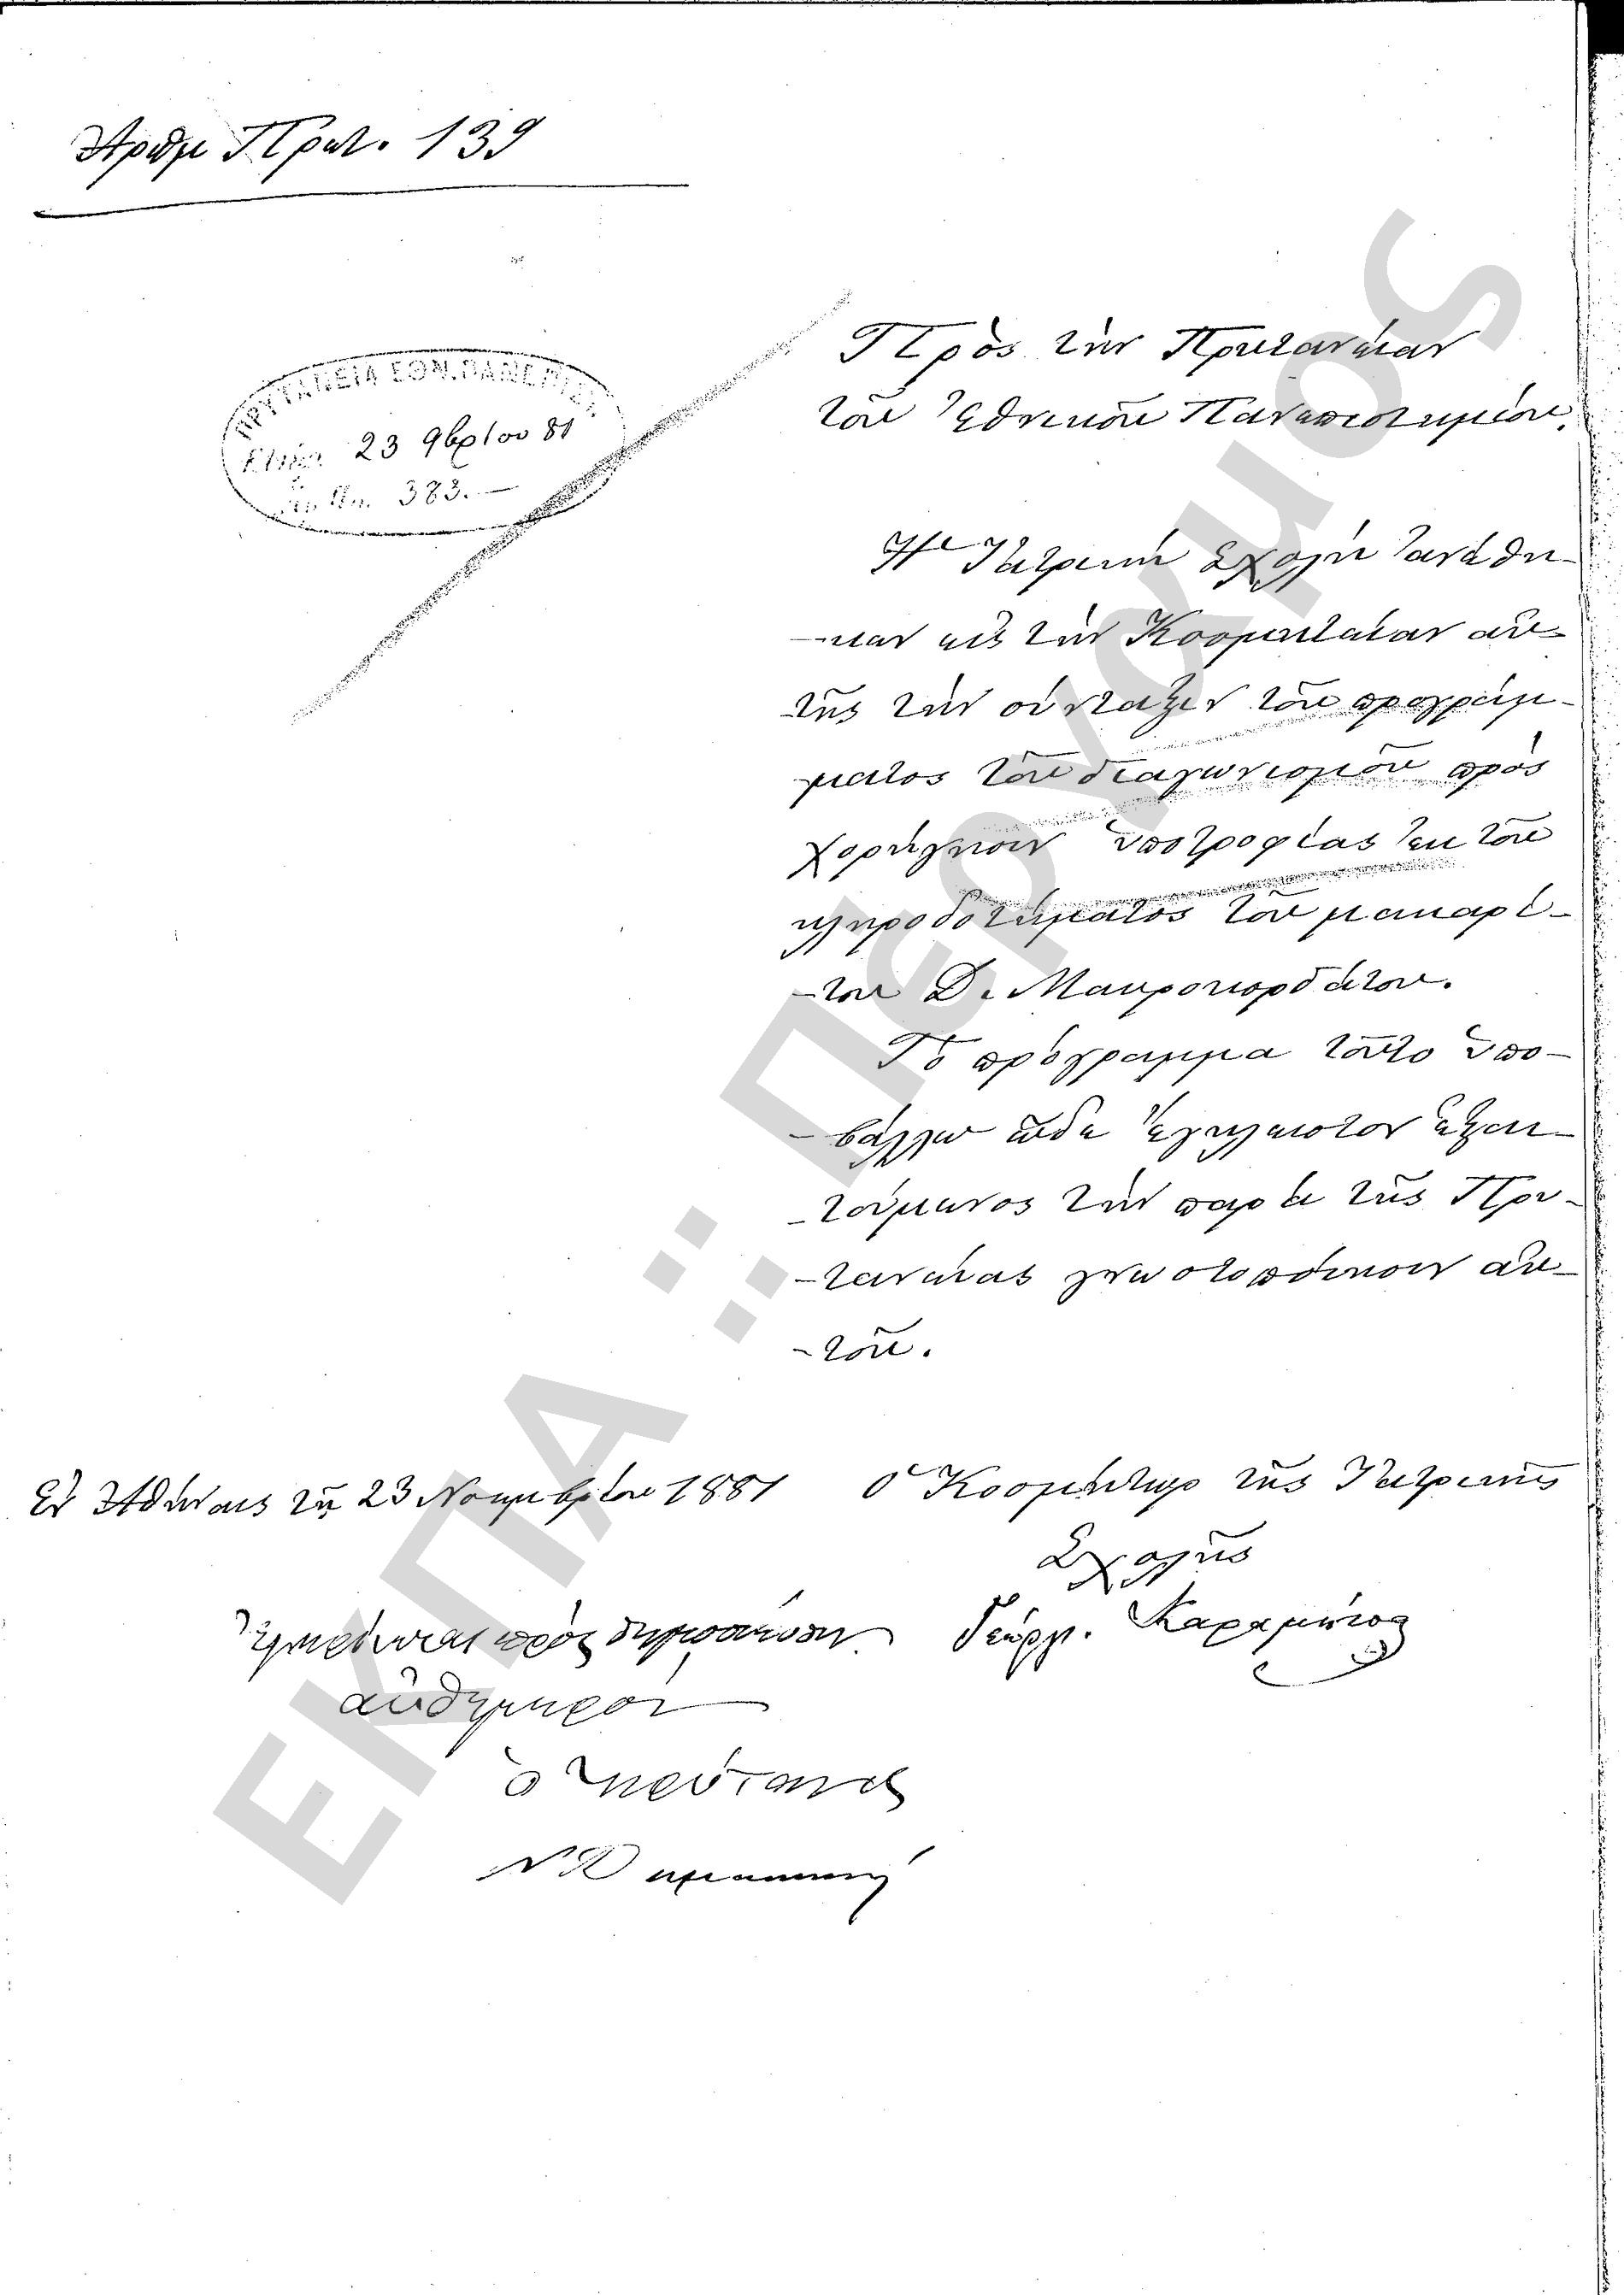 Ἀριθμ Πρωτ. 139
ΠΡΥΤΑΝΕΙΑ ΕΘΝ. ΠΑΝΕΠΙΣΤ.
23 9βρίου 81
383.—
Πρὸς τὴν Πρυτανείαν
τοῦ Ἐθνικοῦ Πανεπιστημίου.
Ἡ Ἰατρικὴ Σχολὴ ἀνέθη-
-κεν εἰς τὴν Κοσμητείαν αὐ-
τῆς τὴν σύνταξιν τοῦ προγράμ-
ματος τοῦ διαγωνισμοῦ πρὸς
χορήγησιν ὑποτροφίας ἐκ τοῦ
κληροδοτήματος τοῦ μακαρί-
-του Δ. Μαυροκορδάτου.
Τὸ πρόγραμμα τοῦτο ὑπο-
-βάλλω ὧδε ἔγκλειστον ἐξαι-
-τούμενος τὴν παρὰ τῆς Πρυ-
-τανείας γνωστοποίησιν αὐ-
-τοῦ.
Ἐν Ἀθήναις τῇ 23 Νοεμβρίου 1881
Ὁ Κοσμήτωρ τῆς Ἰατρικῆς
Σχολῆς
Γεώργ. Καραμήτσας
πρὸς δημοσίευσιν
αὐθήμερον
ὁ Πρύτανις
ΕΚΠΑ :: Πέργαμος